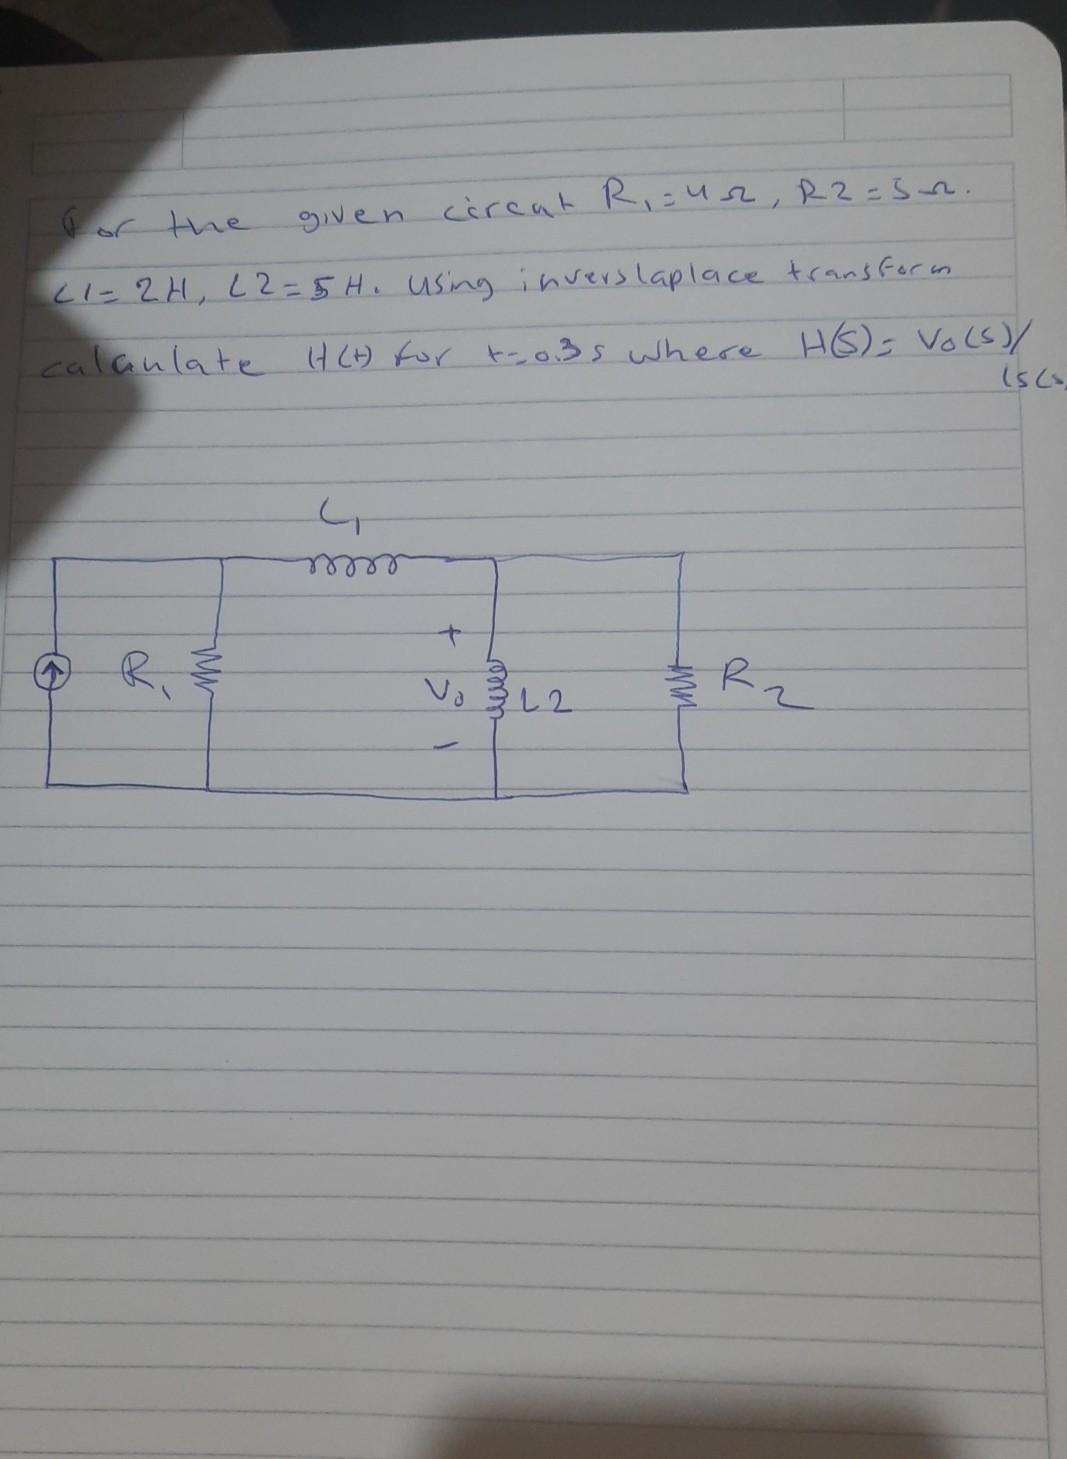 For the given circut R₁=4Ω, R2=5Ω.
L1= 2H, L2=5H. using inverslaplace transform
calculate H(t) for t=0.3s where H(S)= Vo(s)/
Is(s)
L₁
+
R₁
Vo
L2
R₂
-